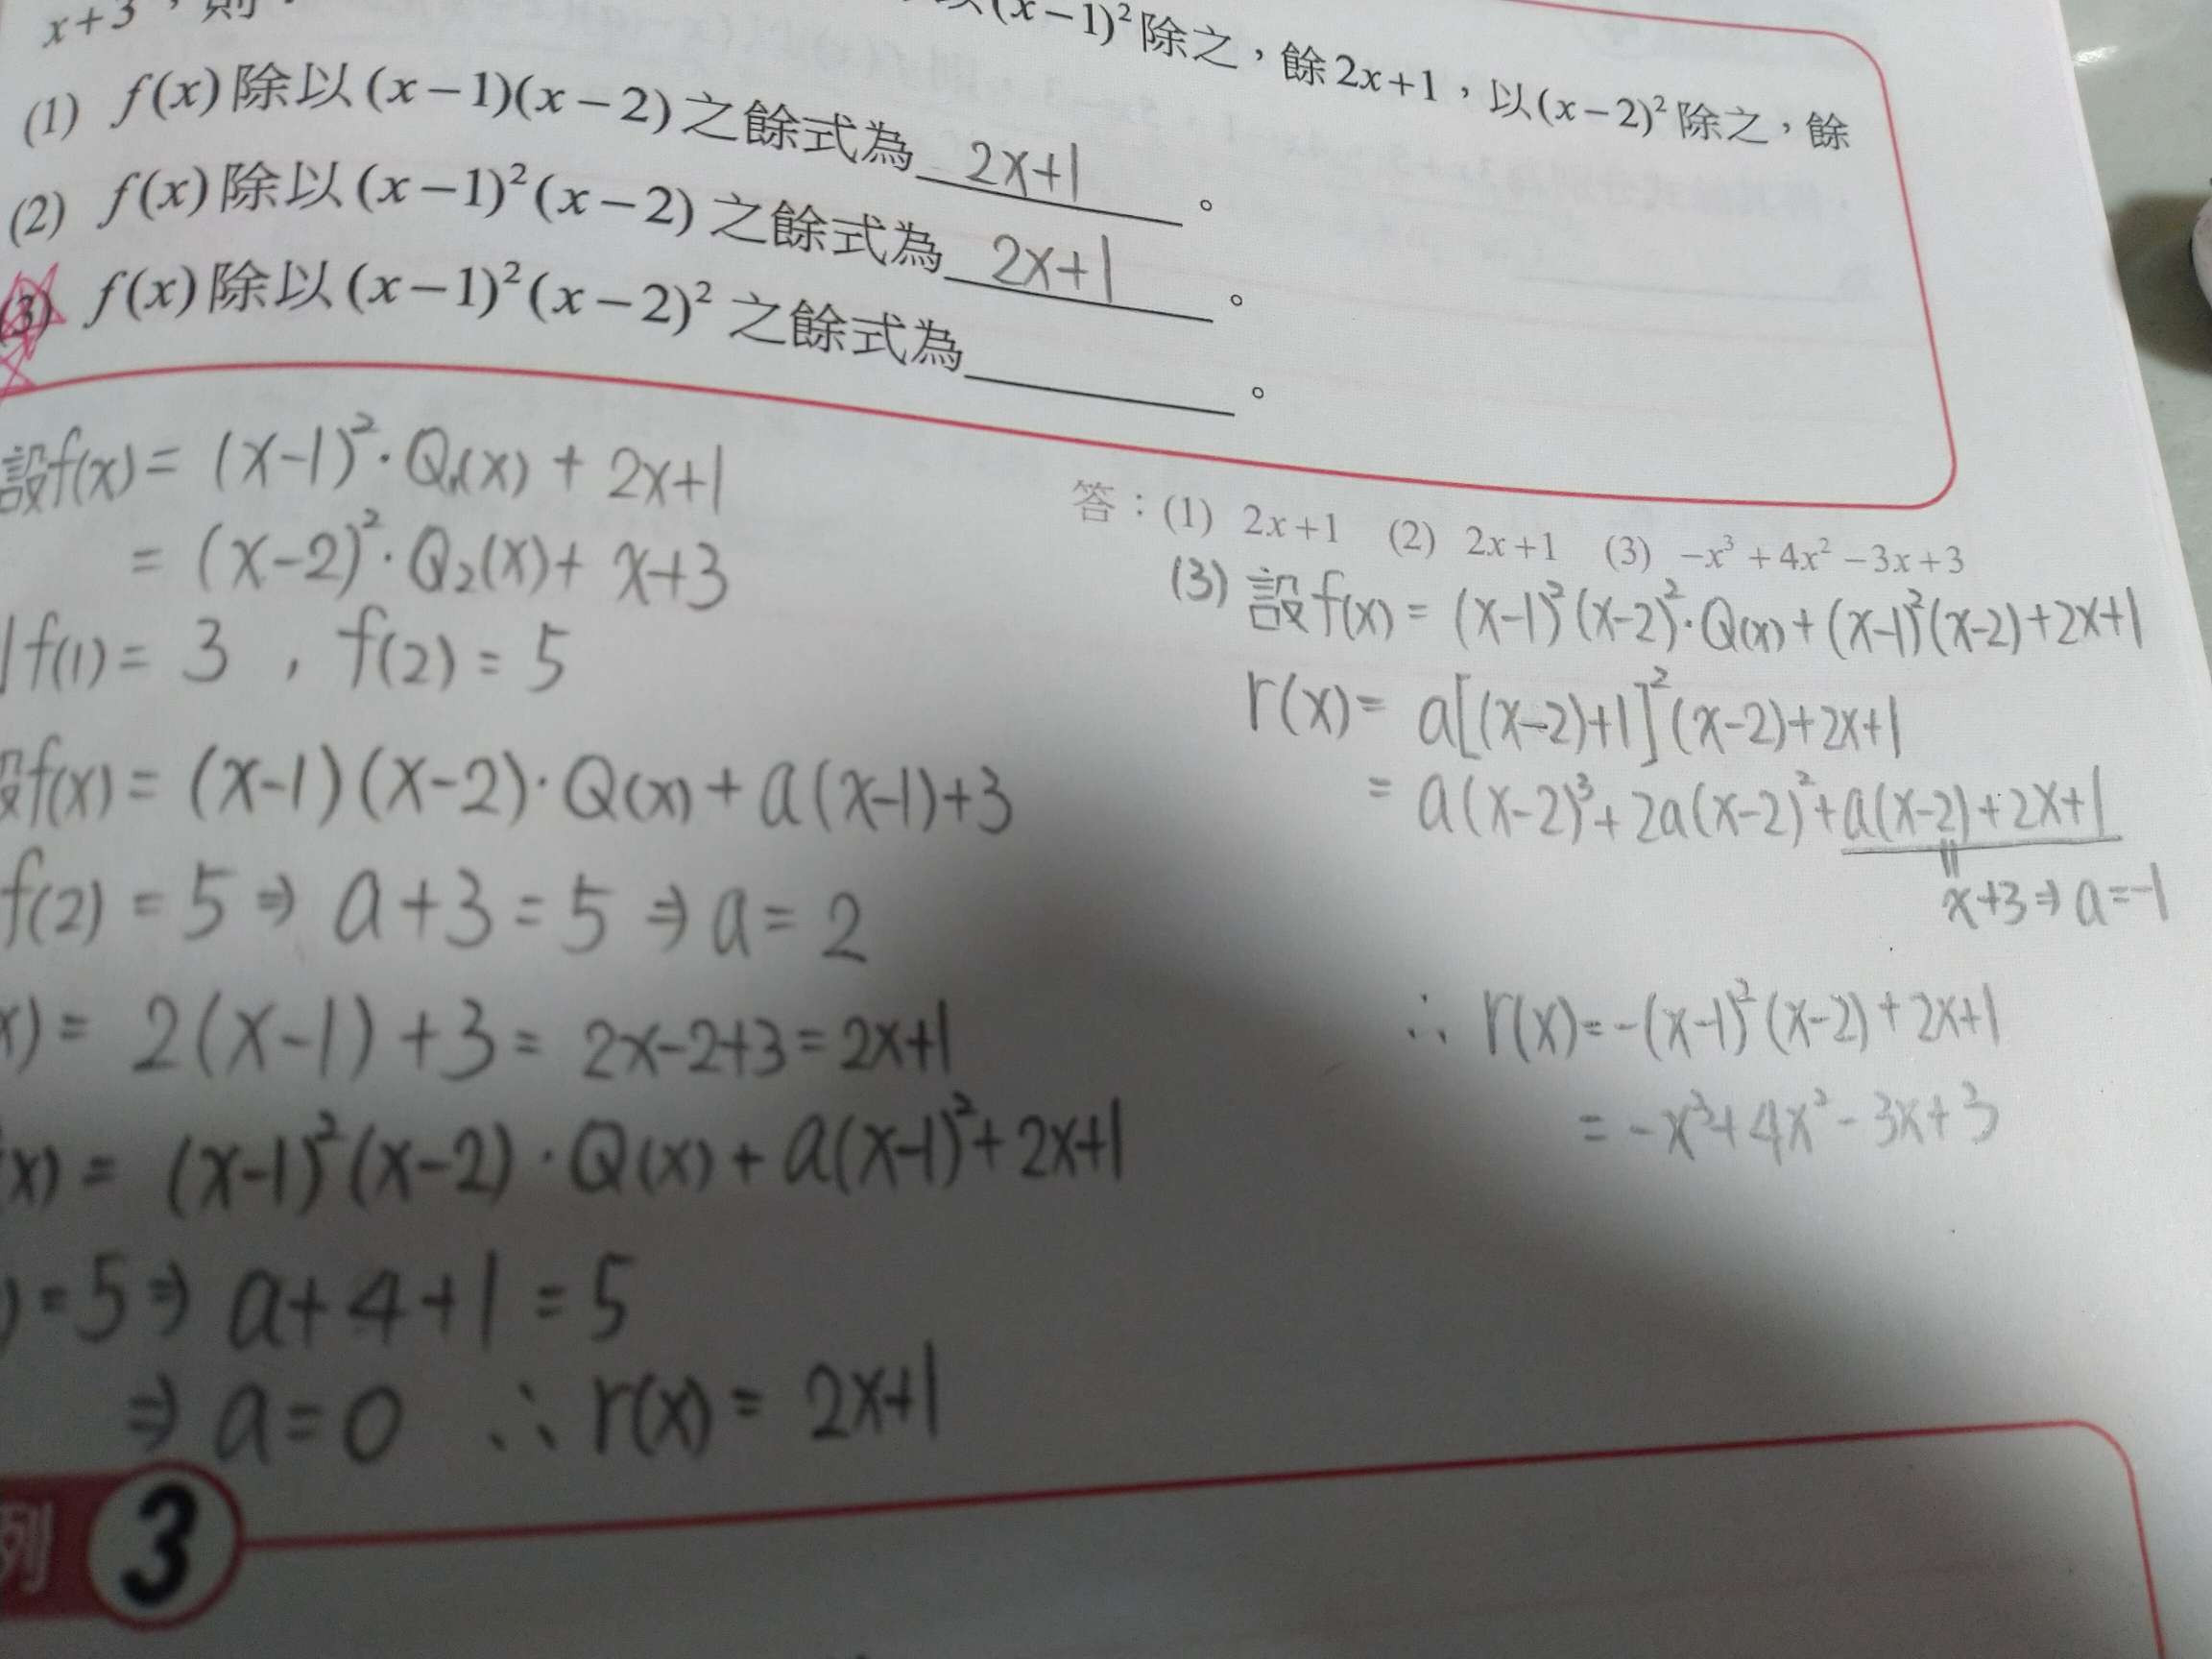 (x−1)²除之，餘2x+1，以(x−2)²除之，餘
x+3，則
(1) f(x)除以(x−1)(x−2)之餘式為 2x+1 。
(2) f(x)除以(x−1)²(x−2)之餘式為 2x+1 。
(3) f(x)除以(x−1)²(x−2)²之餘式為 。
答：(1) 2x+1 (2) 2x+1 (3) −x³+4x²−3x+3
設f(x)= (x-1)²·Q₁(x) + 2x+1
= (x-2)²·Q₂(x) + x+3
f(1) = 3 , f(2) = 5
設f(x) = (x-1)(x-2)·Q(x) + a(x-1)+3
f(2) = 5 ⇒ a+3 = 5 ⇒ a = 2
x) = 2(x-1)+3 = 2x-2+3 = 2x+1
x) = (x-1)²(x-2)·Q(x) + a(x-1)² + 2x+1
) = 5 ⇒ a+4+1 = 5
⇒ a=0 ∴ r(x) = 2x+1
(3) 設f(x) = (x-1)²(x-2)²·Q(x) + (x-1)²(x-2)+2x+1
r(x) = a[(x-2)+1]²(x-2)+2x+1
= a(x-2)³+2a(x-2)²+a(x-2)+2x+1
x+3 ⇒ a=-1
∴ r(x) = -(x-1)²(x-2)+2x+1
= -x³+4x²-3x+3
列 3